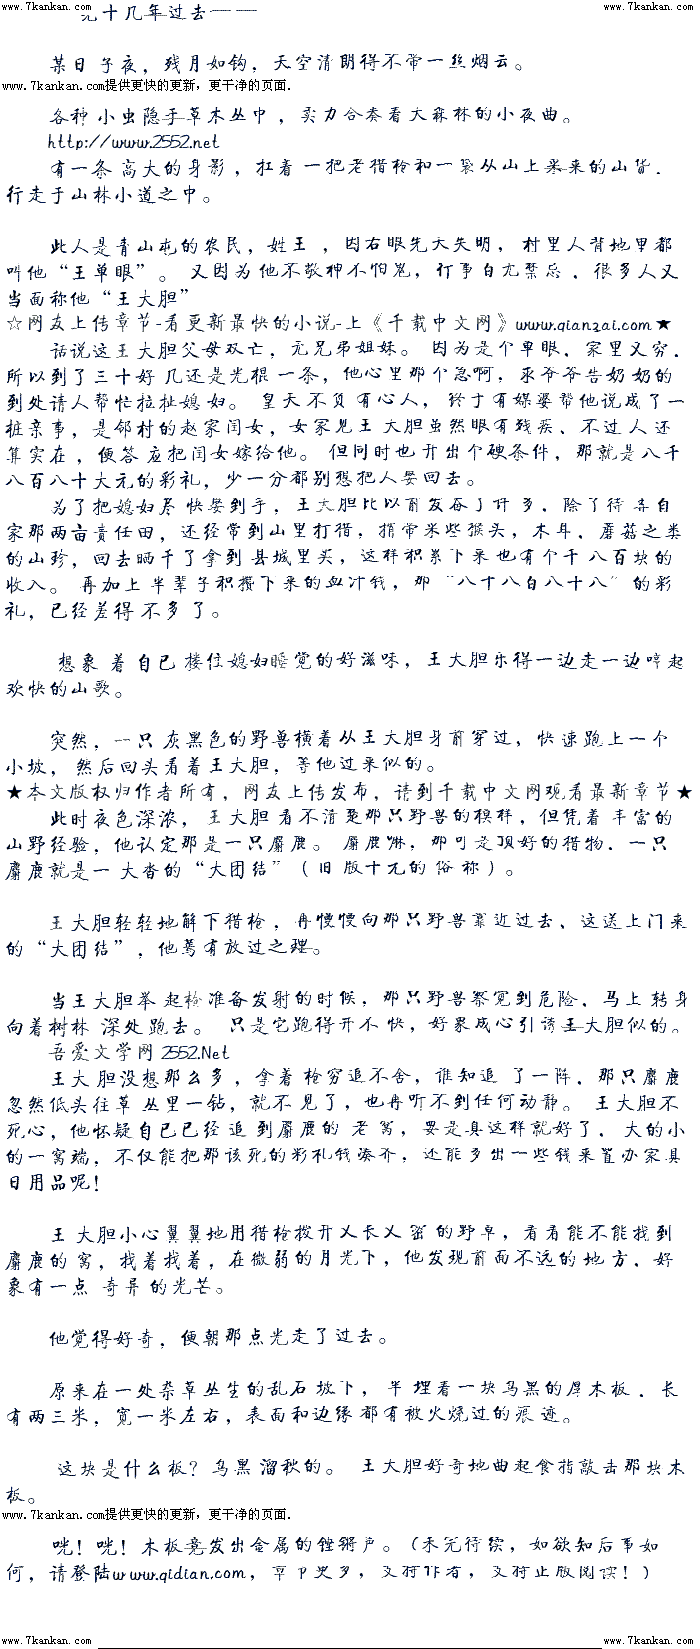 www.7kankan.com www.7kankan.com
几十几年过去——
某日子夜，残月如钩，天空清朗得不带一丝烟云。
www.7kankan.com提供更快的更新，更干净的页面.
各种小虫隐于草木丛中，卖力合奏着大森林的小夜曲。
http://www.2552.net
有一条高大的身影，扛着一把老猎枪和一袋从山上采来的山货，
行走于山林小道之中。
此人是青山屯的农民，姓王，因右眼先天失明，村里人背地里都
叫他“王单眼”。又因为他不敬神不怕鬼，行事百无禁忌，很多人又
当面称他“王大胆”
☆网友上传章节-看更新最快的小说-上《千载中文网》www.qianzai.com★
话说这王大胆父母双亡，无兄弟姐妹。因为是个单眼，家里又穷，
所以到了三十好几还是光棍一条，他心里那个急啊，求爷爷告奶奶的
到处请人帮忙拉扯媳妇。皇天不负有心人，终于有媒婆帮他说成了一
桩亲事，是邻村的赵家闺女，女家见王大胆虽然眼有残疾，不过人还
算实在，便答应把闺女嫁给他。但同时也开出个硬条件，那就是八千
八百八十大元的彩礼，少一分都别想把人娶回去。
为了把媳妇尽快娶到手，王大胆比以前发奋了许多，除了侍弄自
家那两亩责任田，还经常到山里打猎，捎带采些猴头，木耳，蘑菇之类
的山珍，回去晒干了拿到县城里卖，这样积累下来也有个千八百块的
收入。再加上半辈子积攒下来的血汗钱，那“八千八百八十八”的彩
礼，已经差得不多了。
想象着自己搂住媳妇睡觉的好滋味，王大胆乐得一边走一边哼起
欢快的山歌。
突然，一只灰黑色的野兽横着从王大胆身前穿过，快速跑上一个
小坡，然后回头看着王大胆，等他过来似的。
★本文版权归作者所有，网友上传发布，请到千载中文网观看最新章节★
此时夜色深浓，王大胆看不清楚那只野兽的模样，但凭着丰富的
山野经验，他认定那是一只麝鹿。麝鹿啊，那可是顶好的猎物，一只
麝鹿就是一大沓的“大团结”（旧版十元的俗称）。
王大胆轻轻地解下猎枪，再慢慢向那只野兽靠近过去，这送上门来
的“大团结”，他焉有放过之理。
当王大胆举起枪准备发射的时候，那只野兽察觉到危险，马上转身
向着树林深处跑去。只是它跑得并不快，好象成心引诱王大胆似的。
吾爱文学网2552.Net
王大胆没想那么多，拿着枪穷追不舍，谁知追了一阵，那只麝鹿
忽然低头往草丛里一钻，就不见了，也再听不到任何动静。王大胆不
死心，他怀疑自己已经追到麝鹿的老窝，要是真这样就好了，大的小
的一窝端，不仅能把那该死的彩礼钱凑齐，还能多出一些钱来置办家具
日用品呢！
王大胆小心翼翼地用猎枪拨开又长又密的野草，看看能不能找到
麝鹿的窝，找着找着，在微弱的月光下，他发现前面不远的地方，好
象有一点奇异的光芒。
他觉得好奇，便朝那点光走了过去。
原来在一处杂草丛生的乱石坡下，半埋着一块乌黑的厚木板，长
有两三米，宽一米左右，表面和边缘都有被火烧过的痕迹。
这块是什么板？乌黑溜秋的。王大胆好奇地曲起食指敲击那块木
板。
www.7kankan.com提供更快的更新，更干净的页面.
咣！咣！木板竟发出金属的铿锵声。（未完待续，如欲知后事如
何，请登陆www.qidian.com，章节更多，支持作者，支持正版阅读！）
www.7kankan.com www.7kankan.com